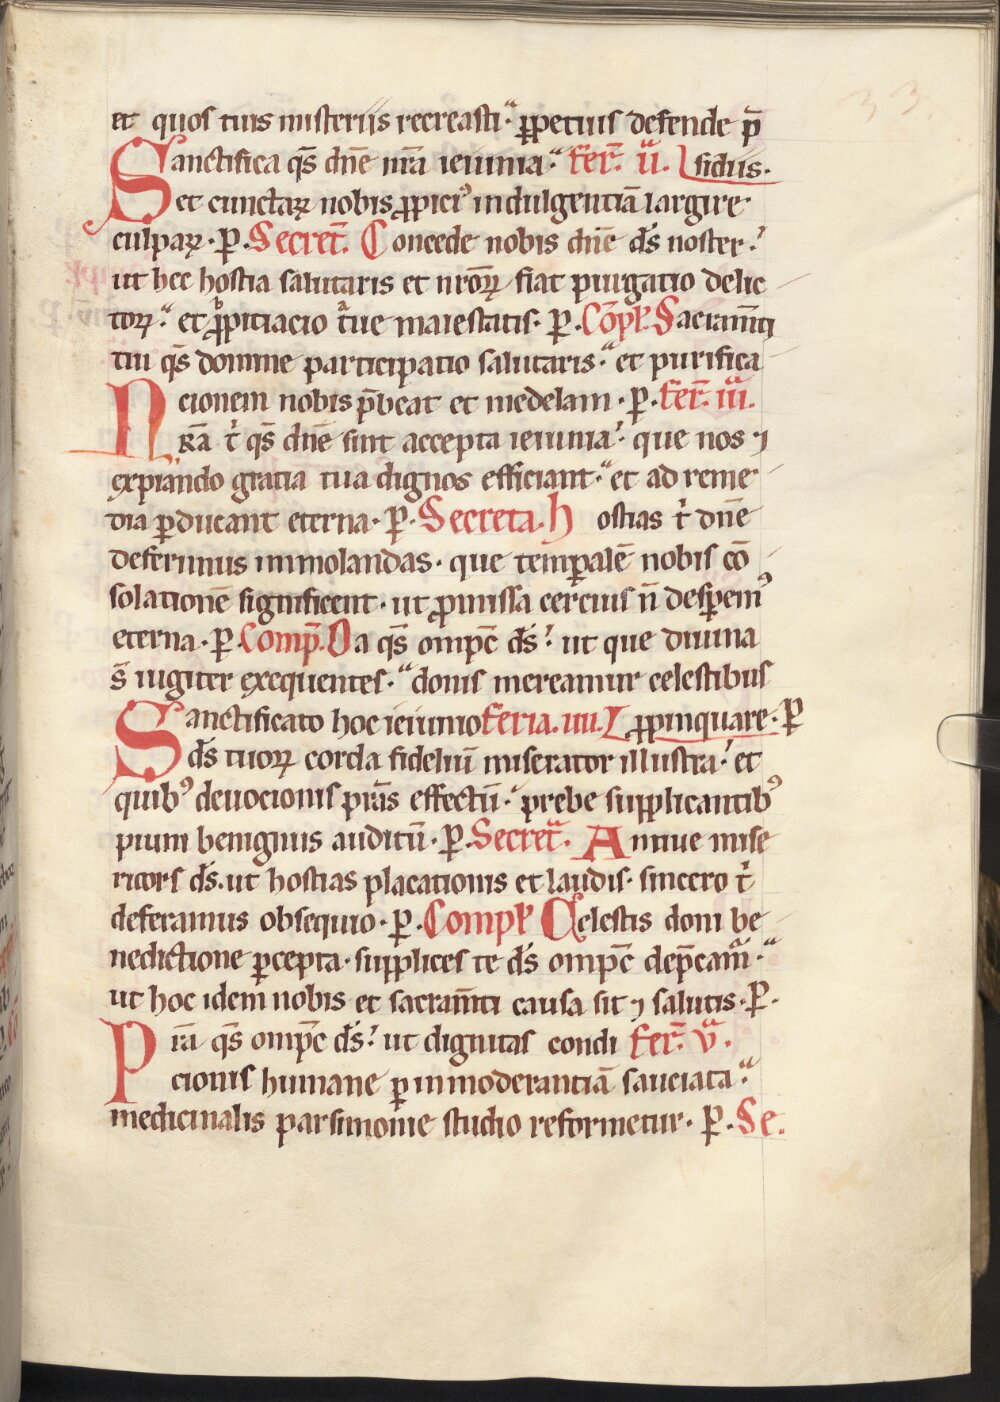 33.
et quos tuis misteriis recreasti. ꝑpetuis defende p̄
Sanctifica qs̄ dn̄e nr̄a ieiunia. fer̄. ii. fidiis.
et cunctaꝝ nobis ꝓpiciꝰ indulgentiā largire
culpaꝝ. P. Secret̄. Concede nobis dn̄e ds̄ noster.
ut hec hostia salutaris et nr̄oꝝ fiat purgatio delic
toꝝ. et ꝓpitiacio tue maiestatis. P. Cōpl̄. Sacram̄ti
tui qs̄ domine participatio salutaris. et purifica
cionem nobis p̄beat et medelam. P. fer̄. iii.
Nr̄a t̄ qs̄ dn̄e sint accepta ieiunia. que nos ⁊
expiando gratia tua dignos efficiant. et ad reme
dia ꝑducant eterna. P. Secreta. hostias t̄ dn̄e
deferimus immolandas. que temꝑalē nobis cō
solationē significent. ut ꝓmissa cercius n̄ desꝑemꝰ
eterna. P. Comp̄. Da qs̄ omp̄c ds̄. ut que diuina
s̄ iugiter exequentes. donis mereamur celestibus
Sanctificato hoc ieiunio feria. iiii. ꝓpinquare. P
ds̄ tuoꝝ corda fideliū miserator illustra. et
quibꝰ deuocionis p̄tas effectū. prebe supplicantibꝰ
pium benignus auditū. P. Secret̄. Annue mise
ricors ds̄. ut hostias placationis et laudis. sincero t̄
deferamus obsequio. P. Compl̄ Celestis doni be
nedictione ꝑcepta. supplices te ds̄ omp̄c dep̄cam̄.
ut hoc idem nobis et sacram̄ti causa sit ⁊ salutis. P.
Pr̄ta qs̄ omp̄c ds̄. ut dignitas condi fer̄. v.
cionis humane ꝑ inmoderantiā sauciata.
medicinalis parsimonie studio reformetur. P. Se.